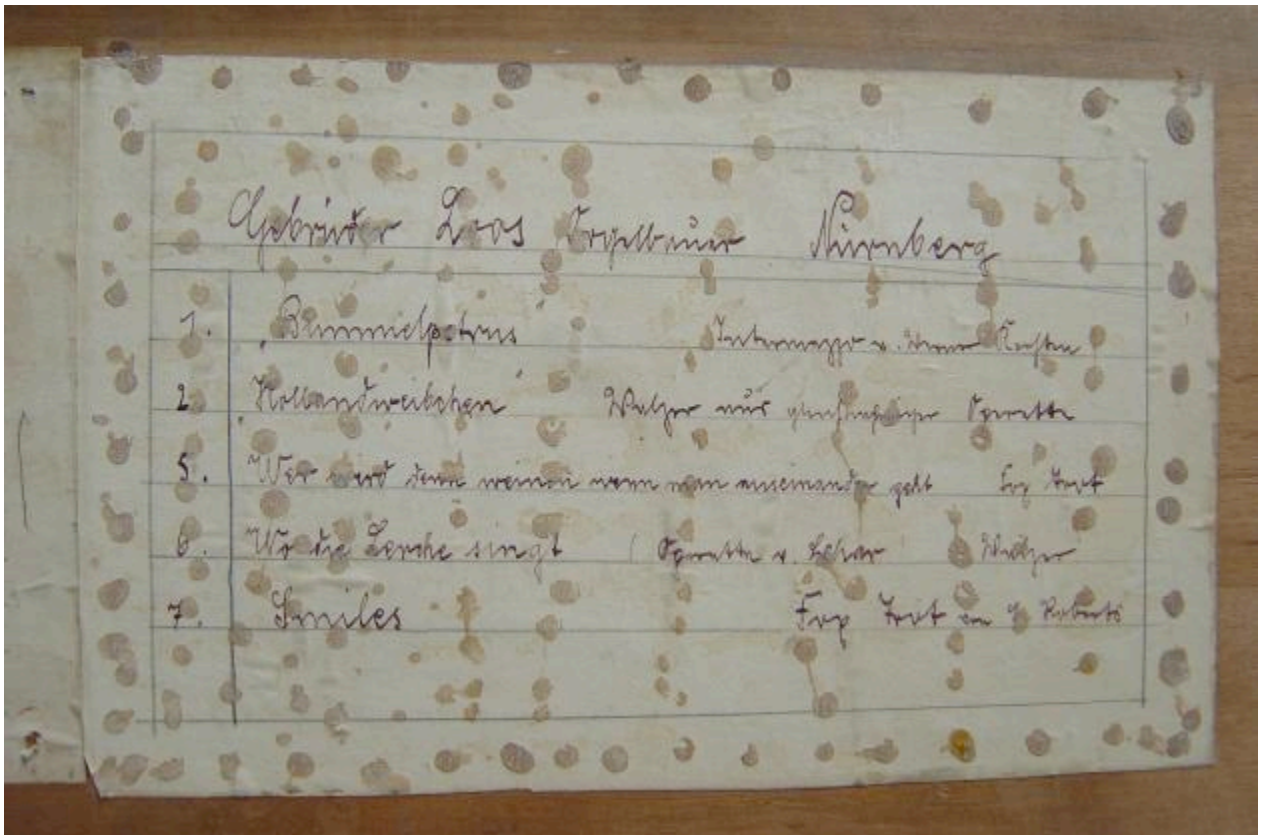 Gebrüder Loos Orgelbauer Nürnberg
1. „Bummelpetrus" Intermezzo v. Werner Kersten
2. „Hollandweibchen" Walzer aus gleichnamiger Operette
5. Wer wird denn weinen wenn man auseinander geht Fox Trot
6. Wo die Lerche singt Operette v. Lehar Walzer
7. Smiles Fox Trot von Roberts